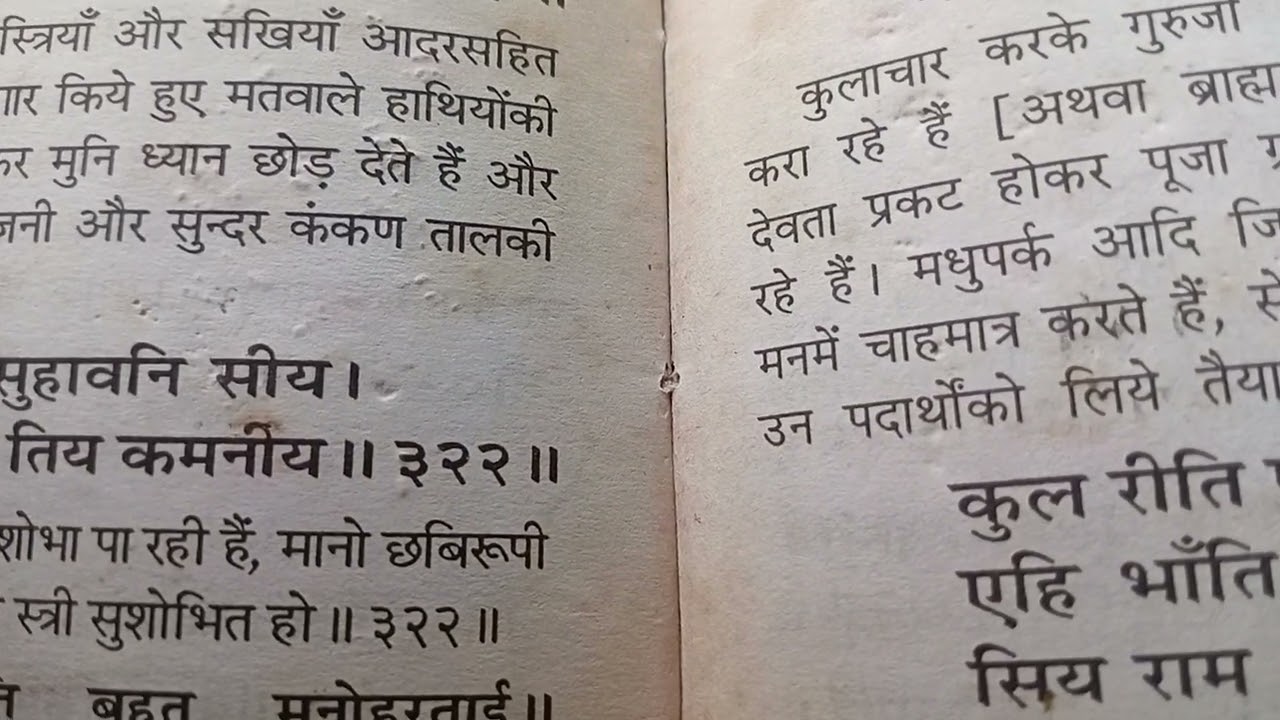 स्त्रियाँ और सखियाँ आदरसहित
किये हुए मतवाले हाथियोंकी
मुनि ध्यान छोड़ देते हैं और
और सुन्दर कंकण तालकी
सुहावनि सीय।
तिय कमनीय॥ ३२२॥
शोभा पा रही हैं, मानो छबिरूपी
स्त्री सुशोभित हो॥ ३२२॥
बहुत मनोहरताई॥
कुलाचार करके गुरुजी
करा रहे हैं [अथवा
देवता प्रकट होकर पूजा
रहे हैं। मधुपर्क आदि
मनमें चाहमात्र करते हैं,
उन पदार्थोंको लिये
कुल रीति
एहि भाँति
सिय राम